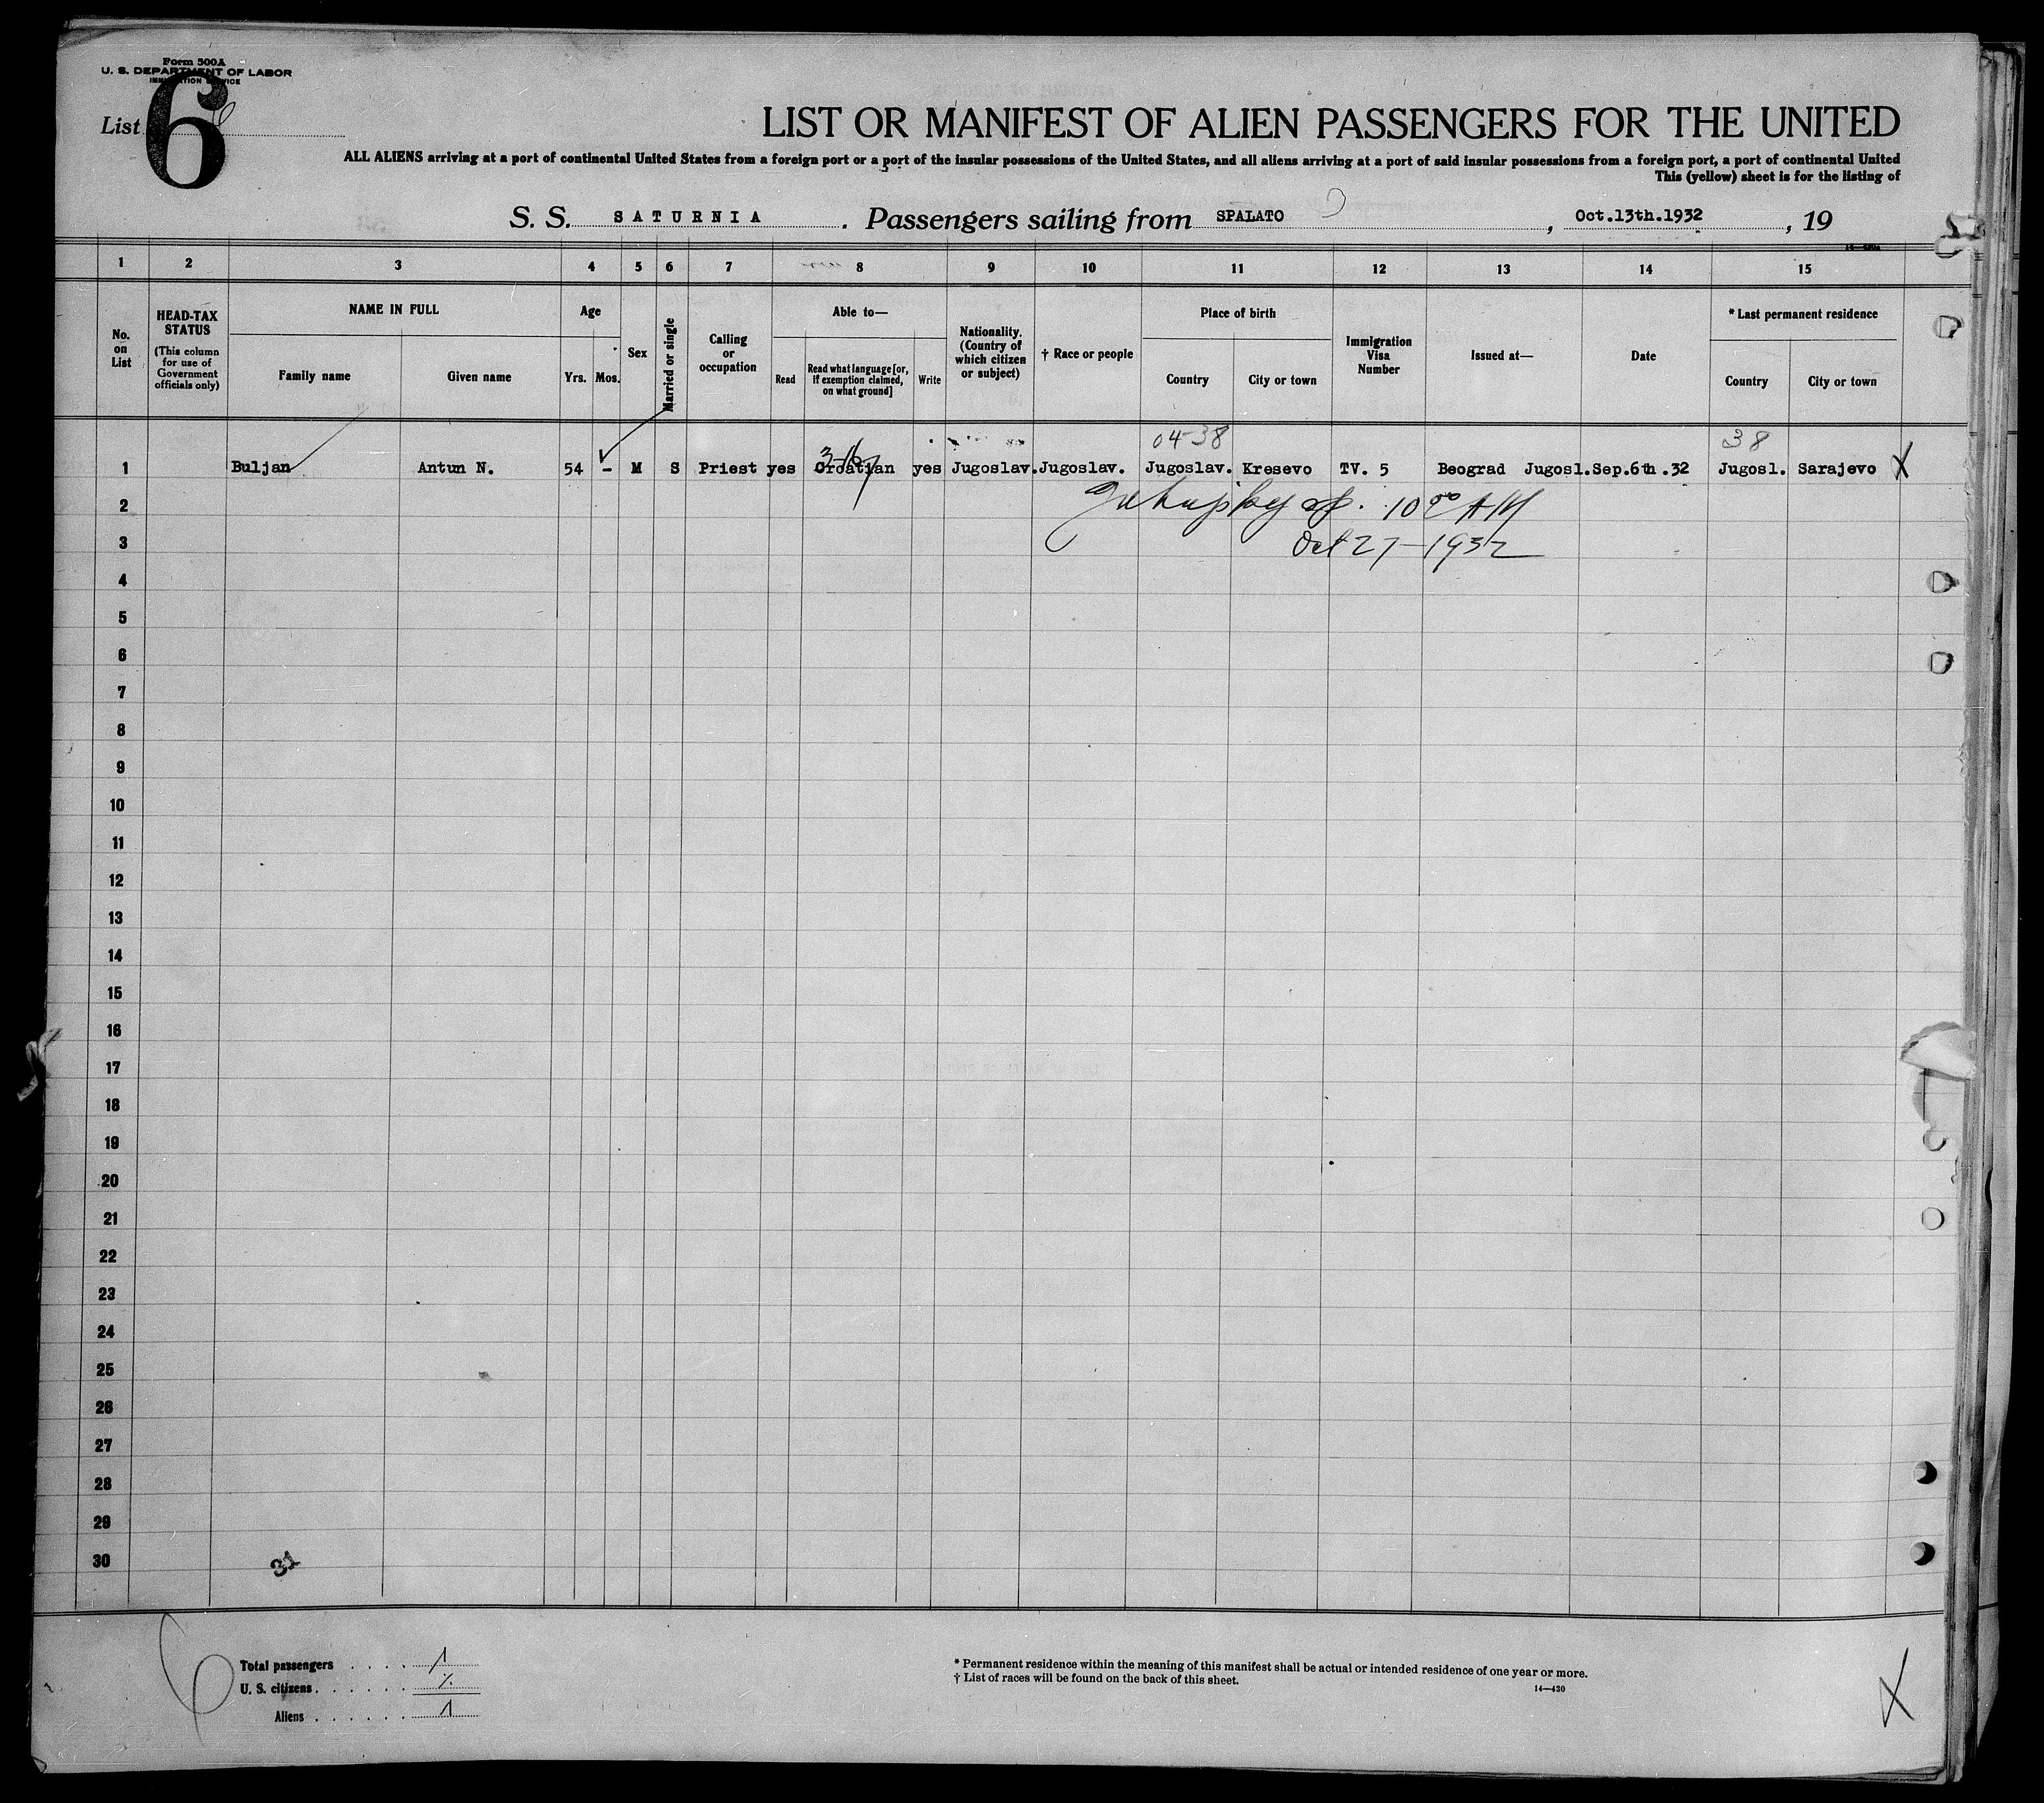 Form 500A
U. S. DEPARTMENT OF LABOR
IMMIGRATION SERVICE
List 6
LIST OR MANIFEST OF ALIEN PASSENGERS FOR THE UNITED
ALL ALIENS arriving at a port of continental United States from a foreign port or a port of the insular possessions of the United States, and all aliens arriving at a port of said insular possessions from a foreign port, a port of continental United
This (yellow) sheet is for the listing of
S. S. SATURNIA. Passengers sailing from SPALATO, Oct.13th.1932, 19
1 2 3 4 5 6 7 8 9 10 11 12 13 14 15
No. on List
HEAD-TAX STATUS
(This column for use of Government officials only)
NAME IN FULL
Family name
Given name
Age
Yrs. Mos.
Sex
Married or single
Calling or occupation
Able to—
Read
Read what language [or, if exemption claimed, on what ground]
Write
Nationality. (Country of which citizen or subject)
† Race or people
Place of birth
Country
City or town
Immigration Visa Number
Issued at—
Date
* Last permanent residence
Country
City or town
04-38 38
1 Buljan Antun N. 54 - M S Priest yes Croatian yes Jugoslav. Jugoslav. Jugoslav. Kresevo TV. 5 Beograd Jugosl. Sep.6th.32 Jugosl. Sarajevo X
2 10 00 AM
3 Oct 27-1932
4
5
6
7
8
9
10
11
12
13
14
15
16
17
18
19
20
21
22
23
24
25
26
27
28
29
30
31
6
Total passengers . . . . 1
U. S. citizens . . . . . .
Aliens . . . . . . 1
* Permanent residence within the meaning of this manifest shall be actual or intended residence of one year or more.
† List of races will be found on the back of this sheet.
14—430
X